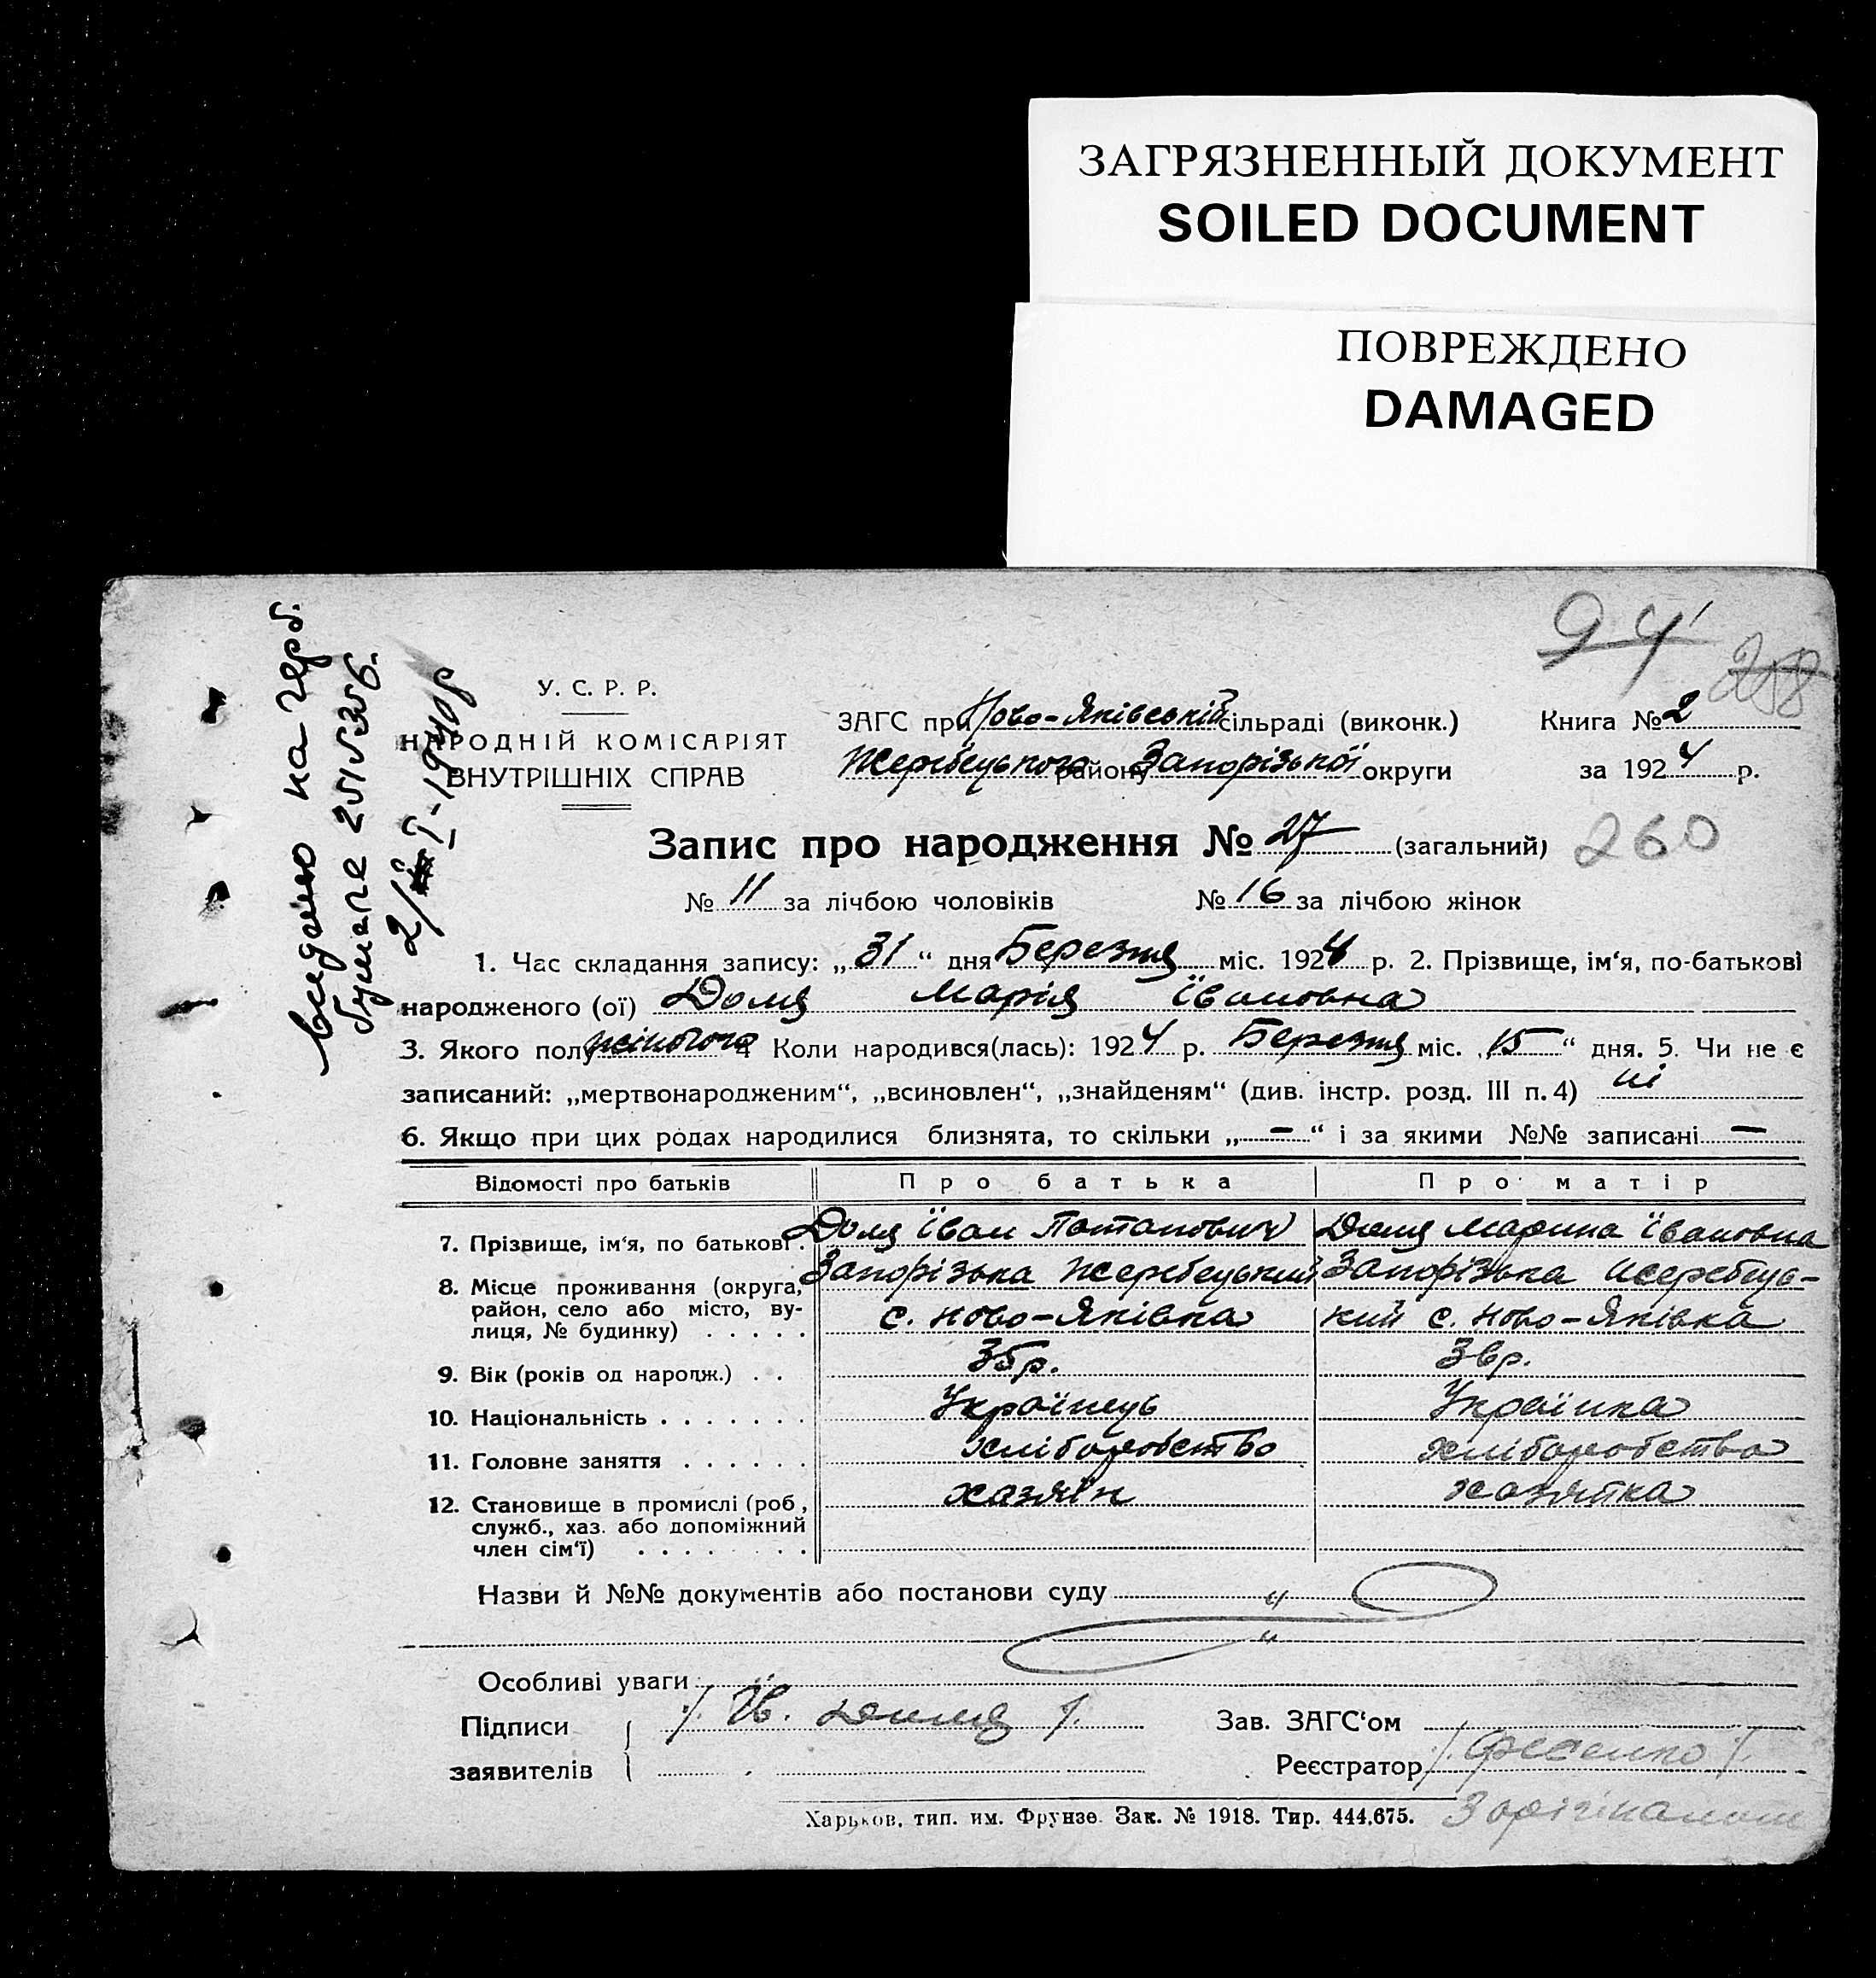 ЗАГРЯЗНЕННЫЙ ДОКУМЕНТ
SOILED DOCUMENT
ПОВРЕЖДЕНО
DAMAGED
94
258
видано на герб.
бумаге
У. С. Р. Р.
НАРОДНІЙ КОМІСАРІЯТ
ВНУТРІШНІХ СПРАВ
ЗАГС при Ново-Яківській сільраді (виконк.) Книга № 2
Жеребецького району Запорізької округи за 1924 р.
Запис про народження № 27 (загальний) 260
№ 11 за лічбою чоловіків № 16 за лічбою жінок
1. Час складання запису: „31“ дня Березня міс. 1924 р. 2. Прізвище, ім‘я, по-батькові
народженого (ої) Доля Марія Івановна
3. Якого полу жіночого 4 Коли народився(лась): 1924 р. Березня міс. „15“ дня. 5. Чи не є
записаний: „мертвонародженим“, „всиновлен“, „знайденям“ (див. інстр. розд. III п. 4) ні
6. Якщо при цих родах народилися близнята, то скільки „—“ і за якими №№ записані —
Відомості про батьків Про батька Про матір
7. Прізвище, ім‘я, по батькові. Доля Їван Потапович Доля Марина Івановна
8. Місце проживання (округа, Запорізька Жеребецький Запорізька Жеребець-
район, село або місто, ву- с. Ново-Яківка кий с. Ново-Яківка
лиця, № будинку) . . . . .
9. Вік (років од народж.) . . 35р.
10. Національність . . . . . . . Українець Українка
11. Головне заняття . . . . . . хліборобство хліборобство
12. Становище в промислі (роб., хазяїн хазяйка
служб., хаз. або допоміжний
член сім‘ї) . . . . . . .
Назви й №№ документів або постанови суду „
„
Особливі уваги
Підписи /. Ів. Доля /. Зав. ЗАГС‘ом
заявителів Реєстратор /. Фесенко /.
Харьков, тип. им. Фрунзе. Зак. № 1918. Тир. 444.675. З орігіналом